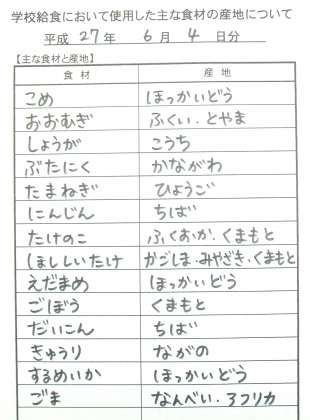 学校給食において使用した主な食材の産地について
平成 27年 6月 4日分
【主な食材と産地】
食材 産地
こめ ほっかいどう
おおむぎ ふくい・とやま
しょうが こうち
ぶたにく かながわ
たまねぎ ひょうご
にんじん ちば
たけのこ ふくおか・くまもと
ほししいたけ かごしま・みやざき・くまもと
えだまめ ほっかいどう
ごぼう くまもと
だいこん ちば
きゅうり ながの
するめいか ほっかいどう
ごま なんべい・アフリカ